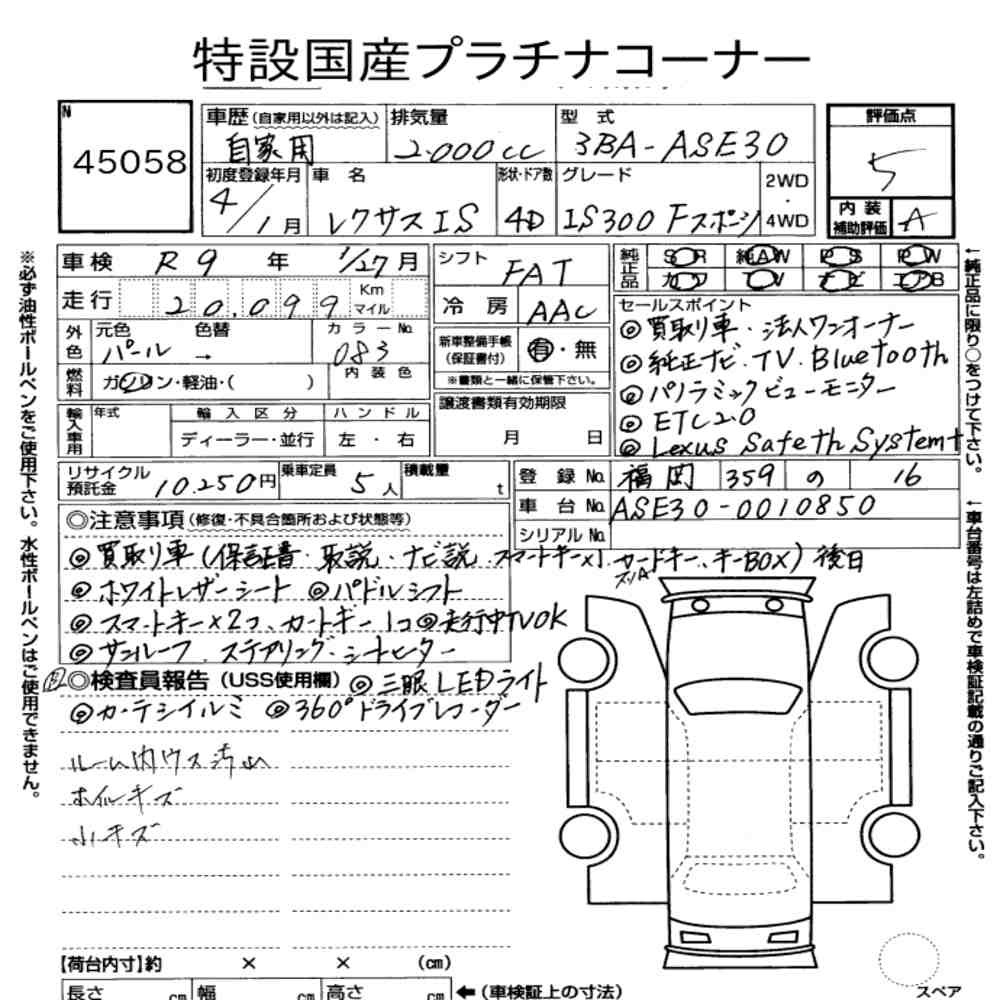 特設国産プラチナコーナー
N
45058
車歴(自家用以外は記入)
自家用
排気量
2.000cc
型 式
3BA-ASE30
評価点
5
初度登録年月
4/1月
車 名
レクサスIS
形状・ドア数
4D
グレード
IS300 Fスポーツ
2WD
・
4WD
内 装
補助評価
A
※必ず油性ボールペンをご使用下さい。水性ボールペンはご使用できません。
車検 R9 年 1/27月
シフト
FAT
純正品
SR 純AW PS PW
カワ TV ナビ エアB
走行 20,099 Km マイル
冷 房
AAC
セールスポイント
◎買取り車・法人ワンオーナー
◎純正ナビ・TV・Bluetooth
◎パノラミックビューモニター
◎ETC2.0
◎Lexus Safeth System+
外色
元色
パール
色替
→
カラーNo.
083
新車整備手帳
(保証書付)
有・無
※書類と一緒に保管下さい。
燃料
ガソリン・軽油・( )
内 装 色
輸入車用
年式
輸 入 区 分
ディーラー・並行
ハ ン ド ル
左 ・ 右
譲渡書類有効期限
月 日
リサイクル
預託金 10.250円
乗車定員 5人
積載量 t
登 録 No. 福岡 359 の 16
車 台 No. ASE30-0010850
シリアルNo.
◎注意事項(修復・不具合箇所および状態等)
◎買取り車(保証書・取説・ナビ説・スマートキー×1・カードキー、キーBOX)後日
◎ホワイトレザーシート ◎パドルシフト
◎スマートキー×2コ、カードキー1コ ◎走行中TVOK
◎サンルーフ、ステアリング・シートヒーター
◎検査員報告(USS使用欄) ◎三眼LEDライト
◎カーテシイルミ ◎360°ドライブレコーダー
ルーム内ウス汚れ
ホイルキズ
小キズ
←純正品に限り○をつけて下さい。
←車台番号は左詰めで車検証記載の通りご記入下さい。
【荷台内寸】約 × × (cm)
長さ cm 幅 cm 高さ cm
←(車検証上の寸法)
スペア